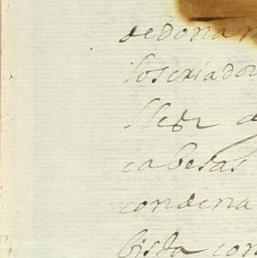 dedona
loscriador
cabesas
condena
bista con